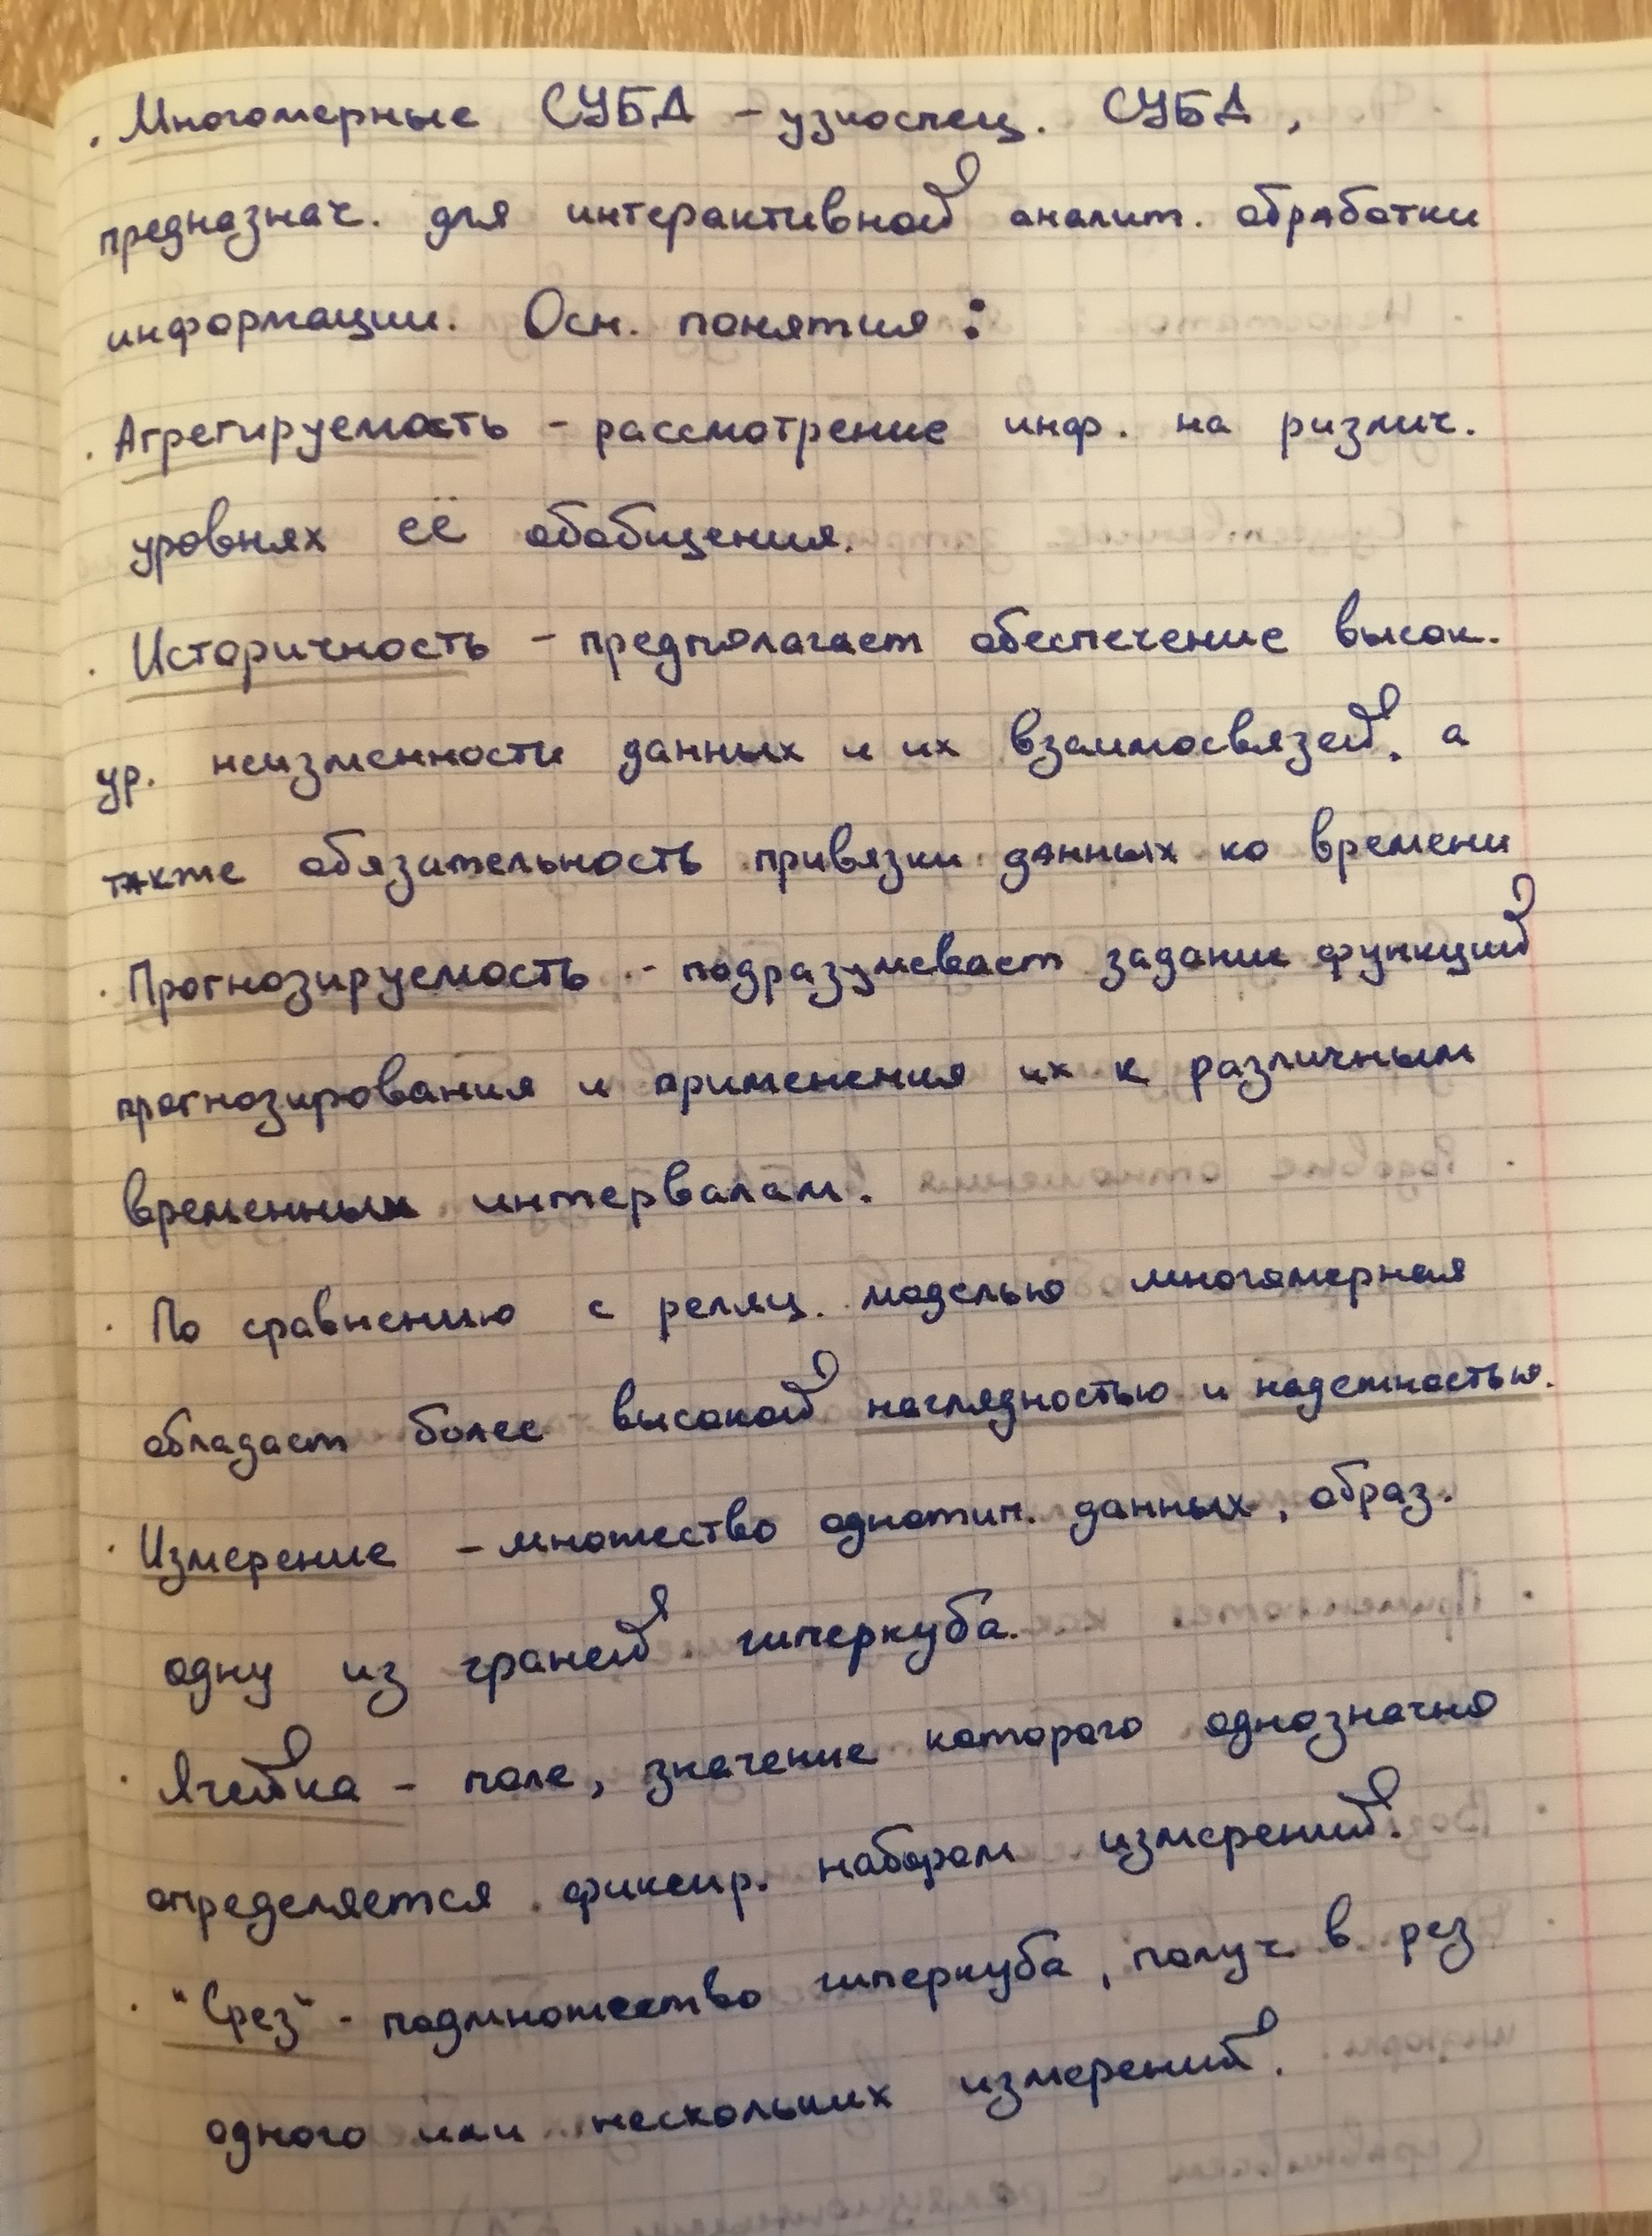 . Многомерные СУБД - узкоспец. СУБД,
предназнач. для интерактивной аналит. обработки
информации. Осн. понятия:
. Агрегируемость - рассмотрение инф. на различ.
уровнях её обобщения.
. Историчность - предполагает обеспечение высок.
ур. неизменности данных и их взаимосвязей, а
также обязательность привязки данных ко времени
. Прогнозируемость - подразумевает задание функций
прогнозирования и применения их к различным
временным интервалам.
. По сравнению с реляц. моделью многомерная
обладает более высокой наглядностью и надежностью.
. Измерение - множество однотип. данных, образ.
одну из граней гиперкуба.
. Ячейка - поле, значение которого однозначно
определяется фиксир. набором измерений.
. "Срез" - подмножество гиперкуба, получ в рез
одного или нескольких измерений.